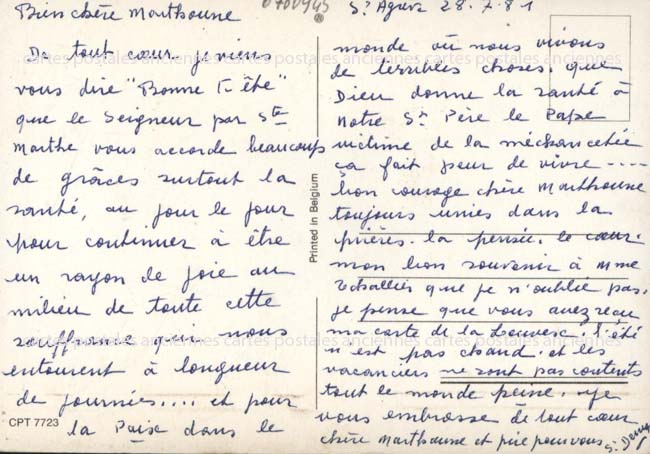 Bien chère Marthoune
De tout cœur je viens
vous dire "Bonne Fête"
que le Seigneur par Ste
Marthe vous accorde beaucoup
de grâces surtout la
santé, au jour le jour
pour continuer à être
un rayon de joie au
milieu de toute cette
souffrance qui nous
entourent à longueur
de journées.... et pour
la Paix dans le
CPT 7723
0700945
Printed in Belgium
St Agrève 28.7.81
monde où nous vivons
de terribles choses. que
Dieu donne la santé à
Notre St Père le Pape
victime de la méchancetée
ça fait peur de vivre ----
bon courage chère Marthoune
toujours unies dans la
prières. la pensée. le cœur.
mon bon souvenir à Mme
que je n'oublie pas.
je pense que vous avez reçu
ma carte de la Louvesc, l'été
n'est pas chaud. et les
vacanciers ne sont pas contents
tout le monde peine. je
vous embrasse de tout cœur
chère Marthoune et prie pour vous
cartes postales anciennes cartes postales anciennes cartes postales anciennes
cartes postales anciennes cartes postales anciennes cartes postales anciennes